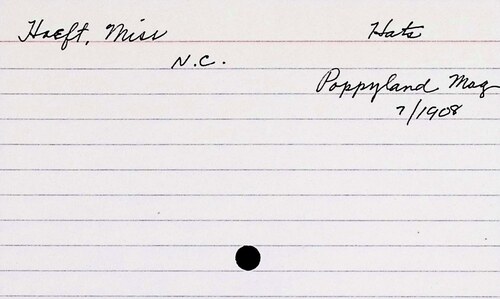 Hoeft, Miss Hats
N.C.
Poppyland Mag
7/1908